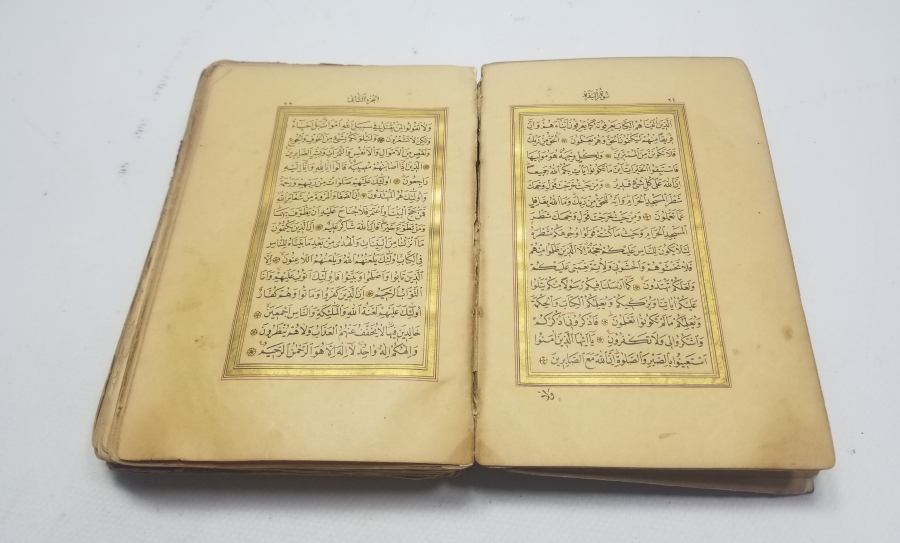 سورة البقرة ٢٢
الَّذِينَ اٰتَيْنَاهُمُ الْكِتَابَ يَعْرِفُونَهُ كَمَا يَعْرِفُونَ اَبْنَاءَهُمْ وَاِنَّ
فَرِيقًا مِنْهُمْ لَيَكْتُمُونَ الْحَقَّ وَهُمْ يَعْلَمُونَ اَلْحَقُّ مِنْ رَبِّكَ
فَلَا تَكُونَنَّ مِنَ الْمُمْتَرِينَ وَلِكُلٍّ وِجْهَةٌ هُوَ مُوَلِّيهَا
فَاسْتَبِقُوا الْخَيْرَاتِ اَيْنَ مَا تَكُونُوا يَأْتِ بِكُمُ اللّٰهُ جَمِيعًا
اِنَّ اللّٰهَ عَلٰى كُلِّ شَيْءٍ قَدِيرٌ وَمِنْ حَيْثُ خَرَجْتَ فَوَلِّ وَجْهَكَ
شَطْرَ الْمَسْجِدِ الْحَرَامِ وَاِنَّهُ لَلْحَقُّ مِنْ رَبِّكَ وَمَا اللّٰهُ بِغَافِلٍ
عَمَّا تَعْمَلُونَ وَمِنْ حَيْثُ خَرَجْتَ فَوَلِّ وَجْهَكَ شَطْرَ
الْمَسْجِدِ الْحَرَامِ وَحَيْثُ مَا كُنْتُمْ فَوَلُّوا وُجُوهَكُمْ شَطْرَهُ
لِئَلَّا يَكُونَ لِلنَّاسِ عَلَيْكُمْ حُجَّةٌ اِلَّا الَّذِينَ ظَلَمُوا مِنْهُمْ
فَلَا تَخْشَوْهُمْ وَاخْشَوْنِي وَلِاُتِمَّ نِعْمَتِي عَلَيْكُمْ
وَلَعَلَّكُمْ تَهْتَدُونَ كَمَا اَرْسَلْنَا فِيكُمْ رَسُولًا مِنْكُمْ يَتْلُوا
عَلَيْكُمْ اٰيَاتِنَا وَيُزَكِّيكُمْ وَيُعَلِّمُكُمُ الْكِتَابَ وَالْحِكْمَةَ
وَيُعَلِّمُكُمْ مَا لَمْ تَكُونُوا تَعْلَمُونَ فَاذْكُرُونِي اَذْكُرْكُمْ
وَاشْكُرُوا لِي وَلَا تَكْفُرُونِ يَا اَيُّهَا الَّذِينَ اٰمَنُوا
اسْتَعِينُوا بِالصَّبْرِ وَالصَّلٰوةِ اِنَّ اللّٰهَ مَعَ الصَّابِرِينَ
ولا
الجزء الثانى ٢٣
وَلَا تَقُولُوا لِمَنْ يُقْتَلُ فِي سَبِيلِ اللّٰهِ اَمْوَاتٌ بَلْ اَحْيَاءٌ
وَلٰكِنْ لَا تَشْعُرُونَ وَلَنَبْلُوَنَّكُمْ بِشَيْءٍ مِنَ الْخَوْفِ وَالْجُوعِ
وَنَقْصٍ مِنَ الْاَمْوَالِ وَالْاَنْفُسِ وَالثَّمَرَاتِ وَبَشِّرِ الصَّابِرِينَ
اَلَّذِينَ اِذَا اَصَابَتْهُمْ مُصِيبَةٌ قَالُوا اِنَّا لِلّٰهِ وَاِنَّا اِلَيْهِ
رَاجِعُونَ اُولٰئِكَ عَلَيْهِمْ صَلَوَاتٌ مِنْ رَبِّهِمْ وَرَحْمَةٌ
وَاُولٰئِكَ هُمُ الْمُهْتَدُونَ اِنَّ الصَّفَا وَالْمَرْوَةَ مِنْ شَعَائِرِ اللّٰهِ
فَمَنْ حَجَّ الْبَيْتَ اَوِ اعْتَمَرَ فَلَا جُنَاحَ عَلَيْهِ اَنْ يَطَّوَّفَ بِهِمَا
وَمَنْ تَطَوَّعَ خَيْرًا فَاِنَّ اللّٰهَ شَاكِرٌ عَلِيمٌ اِنَّ الَّذِينَ يَكْتُمُونَ
مَا اَنْزَلْنَا مِنَ الْبَيِّنَاتِ وَالْهُدٰى مِنْ بَعْدِ مَا بَيَّنَّاهُ لِلنَّاسِ
فِي الْكِتَابِ اُولٰئِكَ يَلْعَنُهُمُ اللّٰهُ وَيَلْعَنُهُمُ اللَّاعِنُونَ اِلَّا
الَّذِينَ تَابُوا وَاَصْلَحُوا وَبَيَّنُوا فَاُولٰئِكَ اَتُوبُ عَلَيْهِمْ وَاَنَا
التَّوَّابُ الرَّحِيمُ اِنَّ الَّذِينَ كَفَرُوا وَمَاتُوا وَهُمْ كُفَّارٌ
اُولٰئِكَ عَلَيْهِمْ لَعْنَةُ اللّٰهِ وَالْمَلٰئِكَةِ وَالنَّاسِ اَجْمَعِينَ
خَالِدِينَ فِيهَا لَا يُخَفَّفُ عَنْهُمُ الْعَذَابُ وَلَا هُمْ يُنْظَرُونَ
وَاِلٰهُكُمْ اِلٰهٌ وَاحِدٌ لَا اِلٰهَ اِلَّا هُوَ الرَّحْمٰنُ الرَّحِيمُ